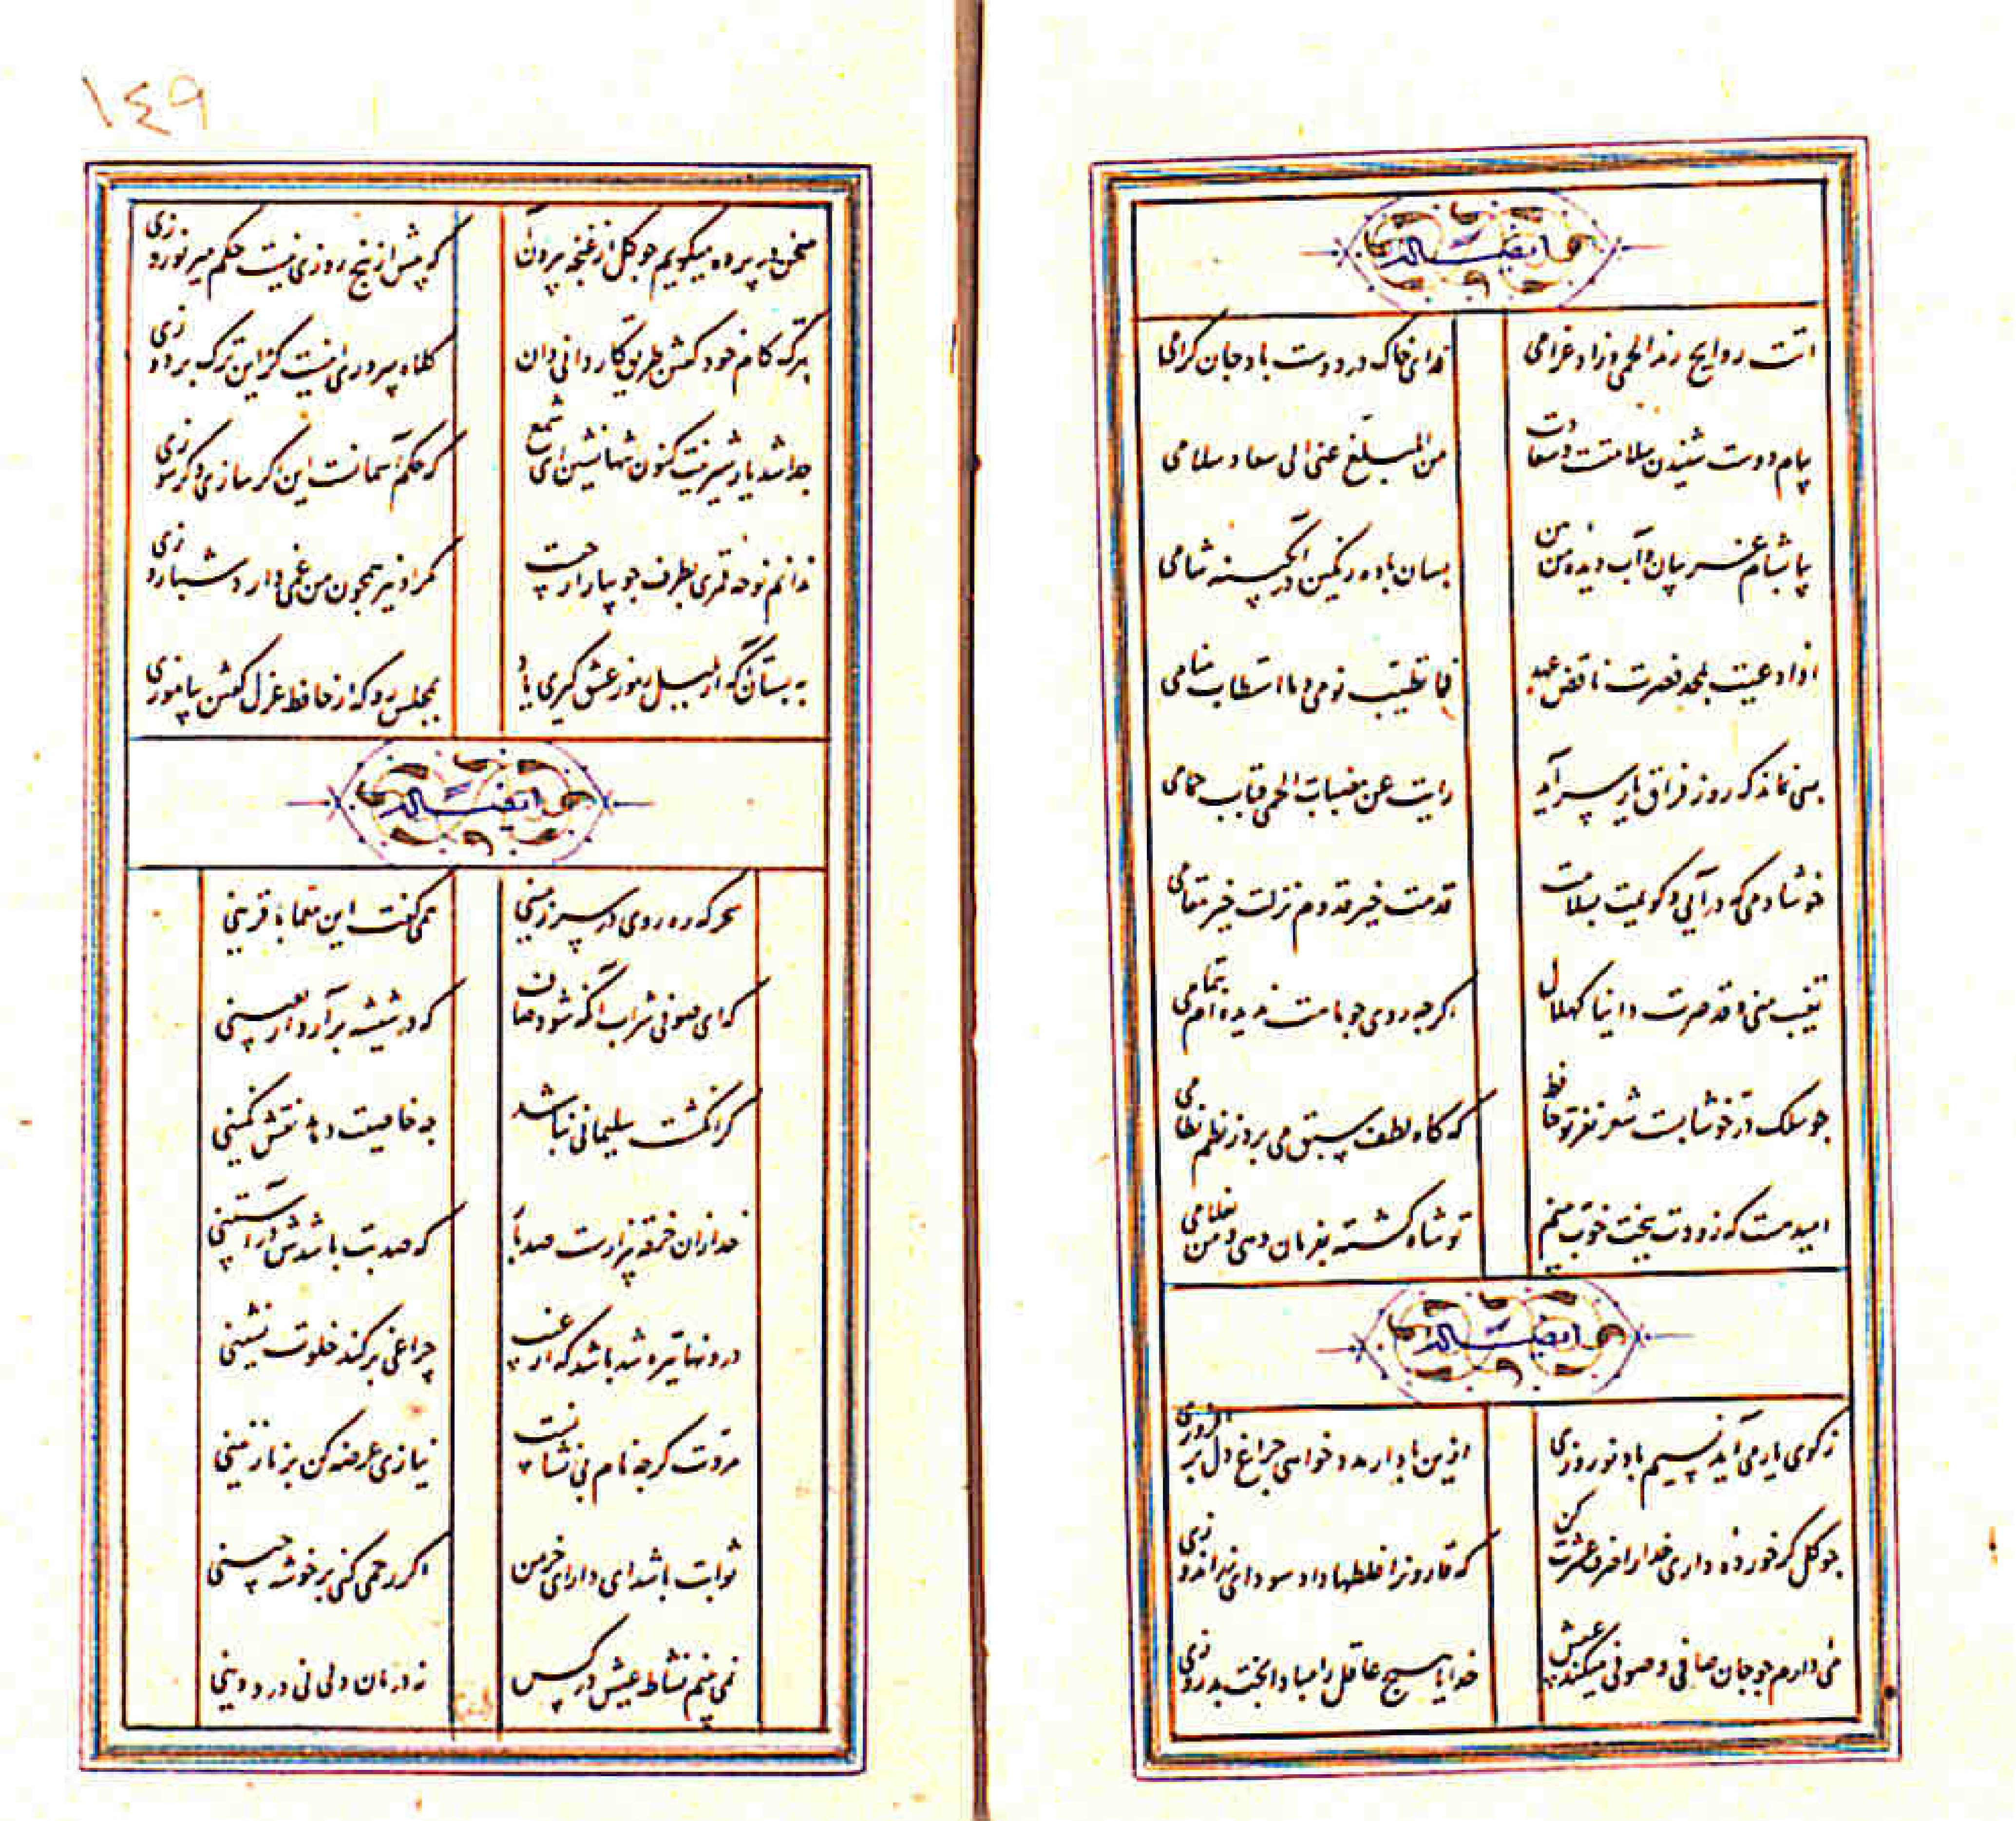 وله ایضا
اتت روایح رند الحمی وزاد غرامی
فدای خاک در دوست باد جان کرامی
پیام دوست شنیدن سلامتست و سعادت
من المبلغ عنی الی سعاد سلامی
بیا بشام غریبان و آب دیده من من
بسان باده رنکین در آبکینه شامی
اذا تغیب نومی و ما استطاب منامی
بسی نماند که روز فراق یار سر آید
رایت عن هضبات الحمی قباب خیامی
خوشا دمی که درآیی و کویمت بسلامت
قدمت خیر قدوم نزلت خیر مقامی
اکرچه روی چو ماهت ندیده‌ام بتمامی
چو سلک در خوشابست شعر نغز تو حافظ
که کاه لطف سبق می برد ز نظم نظامی
امید هست که زودت ببخت خوب ببینم
تو شاد کشته بفرمان دهی و من بغلامی
ایضا له
ز کوی یار می آید نسیم باد نوروزی
ازین باد ار مدد خواهی چراغ دل بر افروزی
چو کل کر خورده داری خدا را صرف عشرت کن
که قارونرا غلطها داد سودای زر اندوزی
می دارم چو جان صافی و صوفی میکند عیبش
خدایا هیچ عاقل را مبادا بخت بد روزی
١٤٩
سخن در پرده میکویم چو کل از غنچه بیرون آ
که بیش از پنج روزی نیست حکم میر نوروزی
بترک کام خود کفتن طریق کاردانی دان
کلاه سروری اینست کز این ترک بر دوزی
جدا شد یار شیرینت کنون تنها نشین ای شمع
که حکم آسمانست این کر سازی و کر سوزی
ندانم نوحه قمری بطرف جویبار از چیست
مکر او نیز همچون من غمی دارد شبا روزی
به بستان کر از بلبل رموز عشق کیری یاد
بمجلس رو که از حافظ غزل کفتن بیاموزی
ایضا له
سحرکه ره روی در سرزمینی
همی کفت این معما با قرینی
که ای صوفی شراب آنکه شود صاف
که در شیشه برآرد اربعینی
کر انکشت سلیمانی نباشد
چه خاصیت دهد نقش نکینی
خدا زان خرقه بیزارست صد بار
که صد بت باشدش در آستینی
درونها تیره شد باشد که از غیب
چراغی بر کند خلوت نشینی
مروت کرچه نام بی نشانست
نیازی عرضه کن بر نازنینی
ثوابت باشد ای دارای خرمن
اکر رحمی کنی بر خوشه چینی
نمی بینم نشاط عیش در کس
نه درمان دلی نی درد دینی